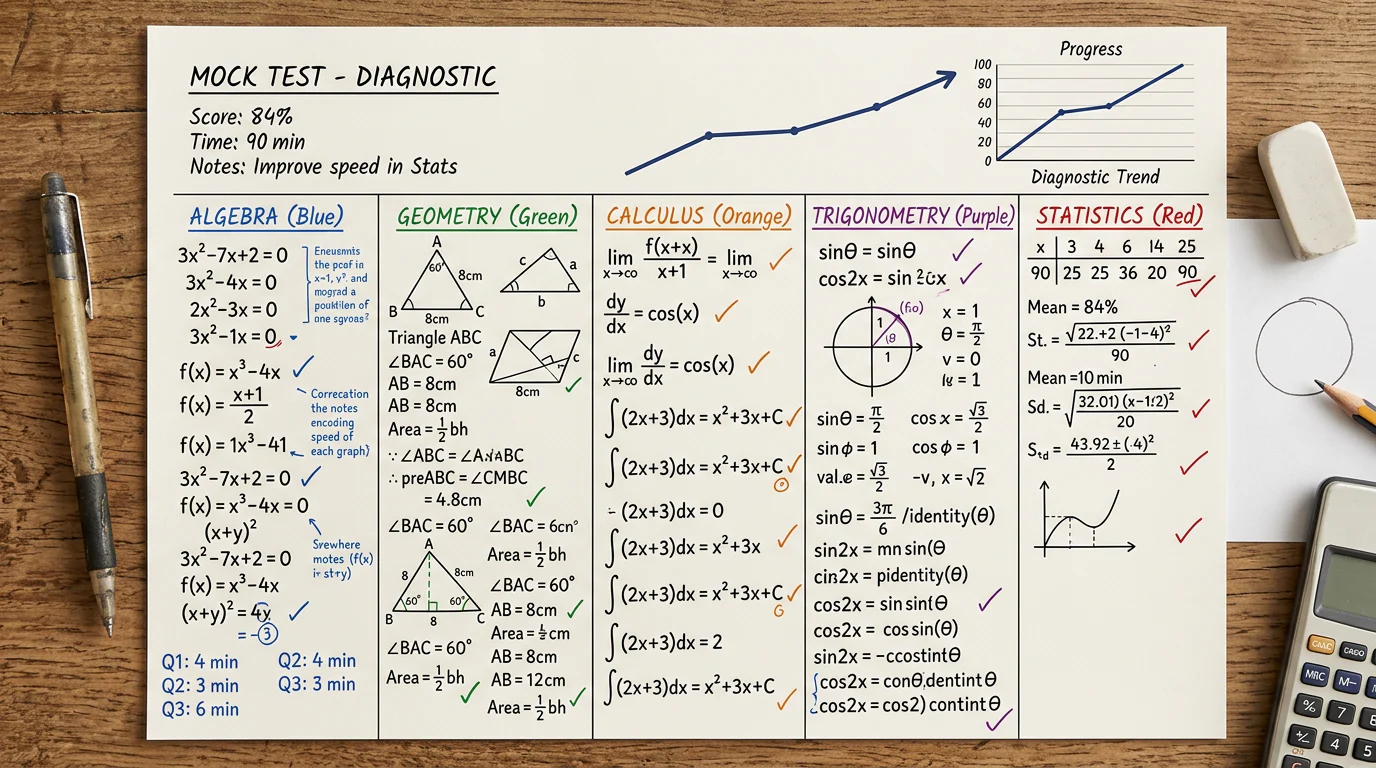 MOCK TEST - DIAGNOSTIC
Score: 84%
Time: 90 min
Notes: Improve speed in Stats
Progress
100
80
60
40
20
0
Diagnostic Trend
ALGEBRA (Blue)
3x²-7x+2=0
3x²-4x=0
2x²-3x=0
3x²-1x=0
the
in
x=1, y², and
of
one
f(x)=x³-4x
f(x)= x+1/2
f(x)=1x³-41
Correcation
the notes
encoding
speed of
each graph)
3x²-7x+2=0
f(x)=x³-4x=0
(x+y)²
3x²-7x+2=0
f(x)=x³-4x
(x+y)²=4x
=-3
motes (f(x)
Q1: 4 min
Q2: 4 min
Q2: 3 min
Q3: 3 min
Q3: 6 min
GEOMETRY (Green)
A
60°
8cm
B
C
8cm
c
a
b
Triangle ABC
∠BAC=60°
AB=8cm
AB=8cm
Area=½bh
a
c
8cm
∵ ∠ABC=
∴ preABC=∠CMBC
=4.8cm
∠BAC=60°
A
8
8cm
60°
60°
B
8
C
∠BAC=60°
Area=½bh
Area=½bh
∠BAC=60°
AB=8cm
Area=½cm
AB=8cm
AB=12cm
Area=½bh
CALCULUS (Orange)
lim x→∞ f(x+x)/x+1 = lim x→∞
dy/dx = cos(x)
lim x→∞ dy/dx = cos(x)
∫(2x+3)dx=x²+3x+C
∫(2x+3)dx=x²+3x+C
(2x+3)dx=0
∫(2x+3)dx=x²+3x
∫(2x+3)dx=x²+3x+C
∫(2x+3)dx=2
∫(2x+3)dx=x²+3x+C
TRIGONOMETRY (Purple)
sinθ=sinθ
cos2x=sin
1
θ
1
x=1
θ=π/2
v=0
=1
sinθ=π/2
cos x=√3/2
sin ϕ=1
cos ϕ=1
val.e=√3/2
-v, x=√2
sinθ=3π/6 /identity(θ)
sin2x=mn sin(θ
cin2x=pidentity(θ)
cos2x=sin sin(θ
cos2x=cos sin(θ)
sin2x=-ccostintθ
cos2x=conθ,dentintθ
cos2x=cos2) contintθ
STATISTICS (Red)
x 3 4 6 14 25
90 25 25 36 20 90
Mean = 84%
St. = √22.+2 (-1-4)²/90
Mean =10 min
Sd. = √32.01) (x-1!2)²/20
Std = 43.92±(.4)²/2
MRC
M-
%
7
8
+/-
4
5